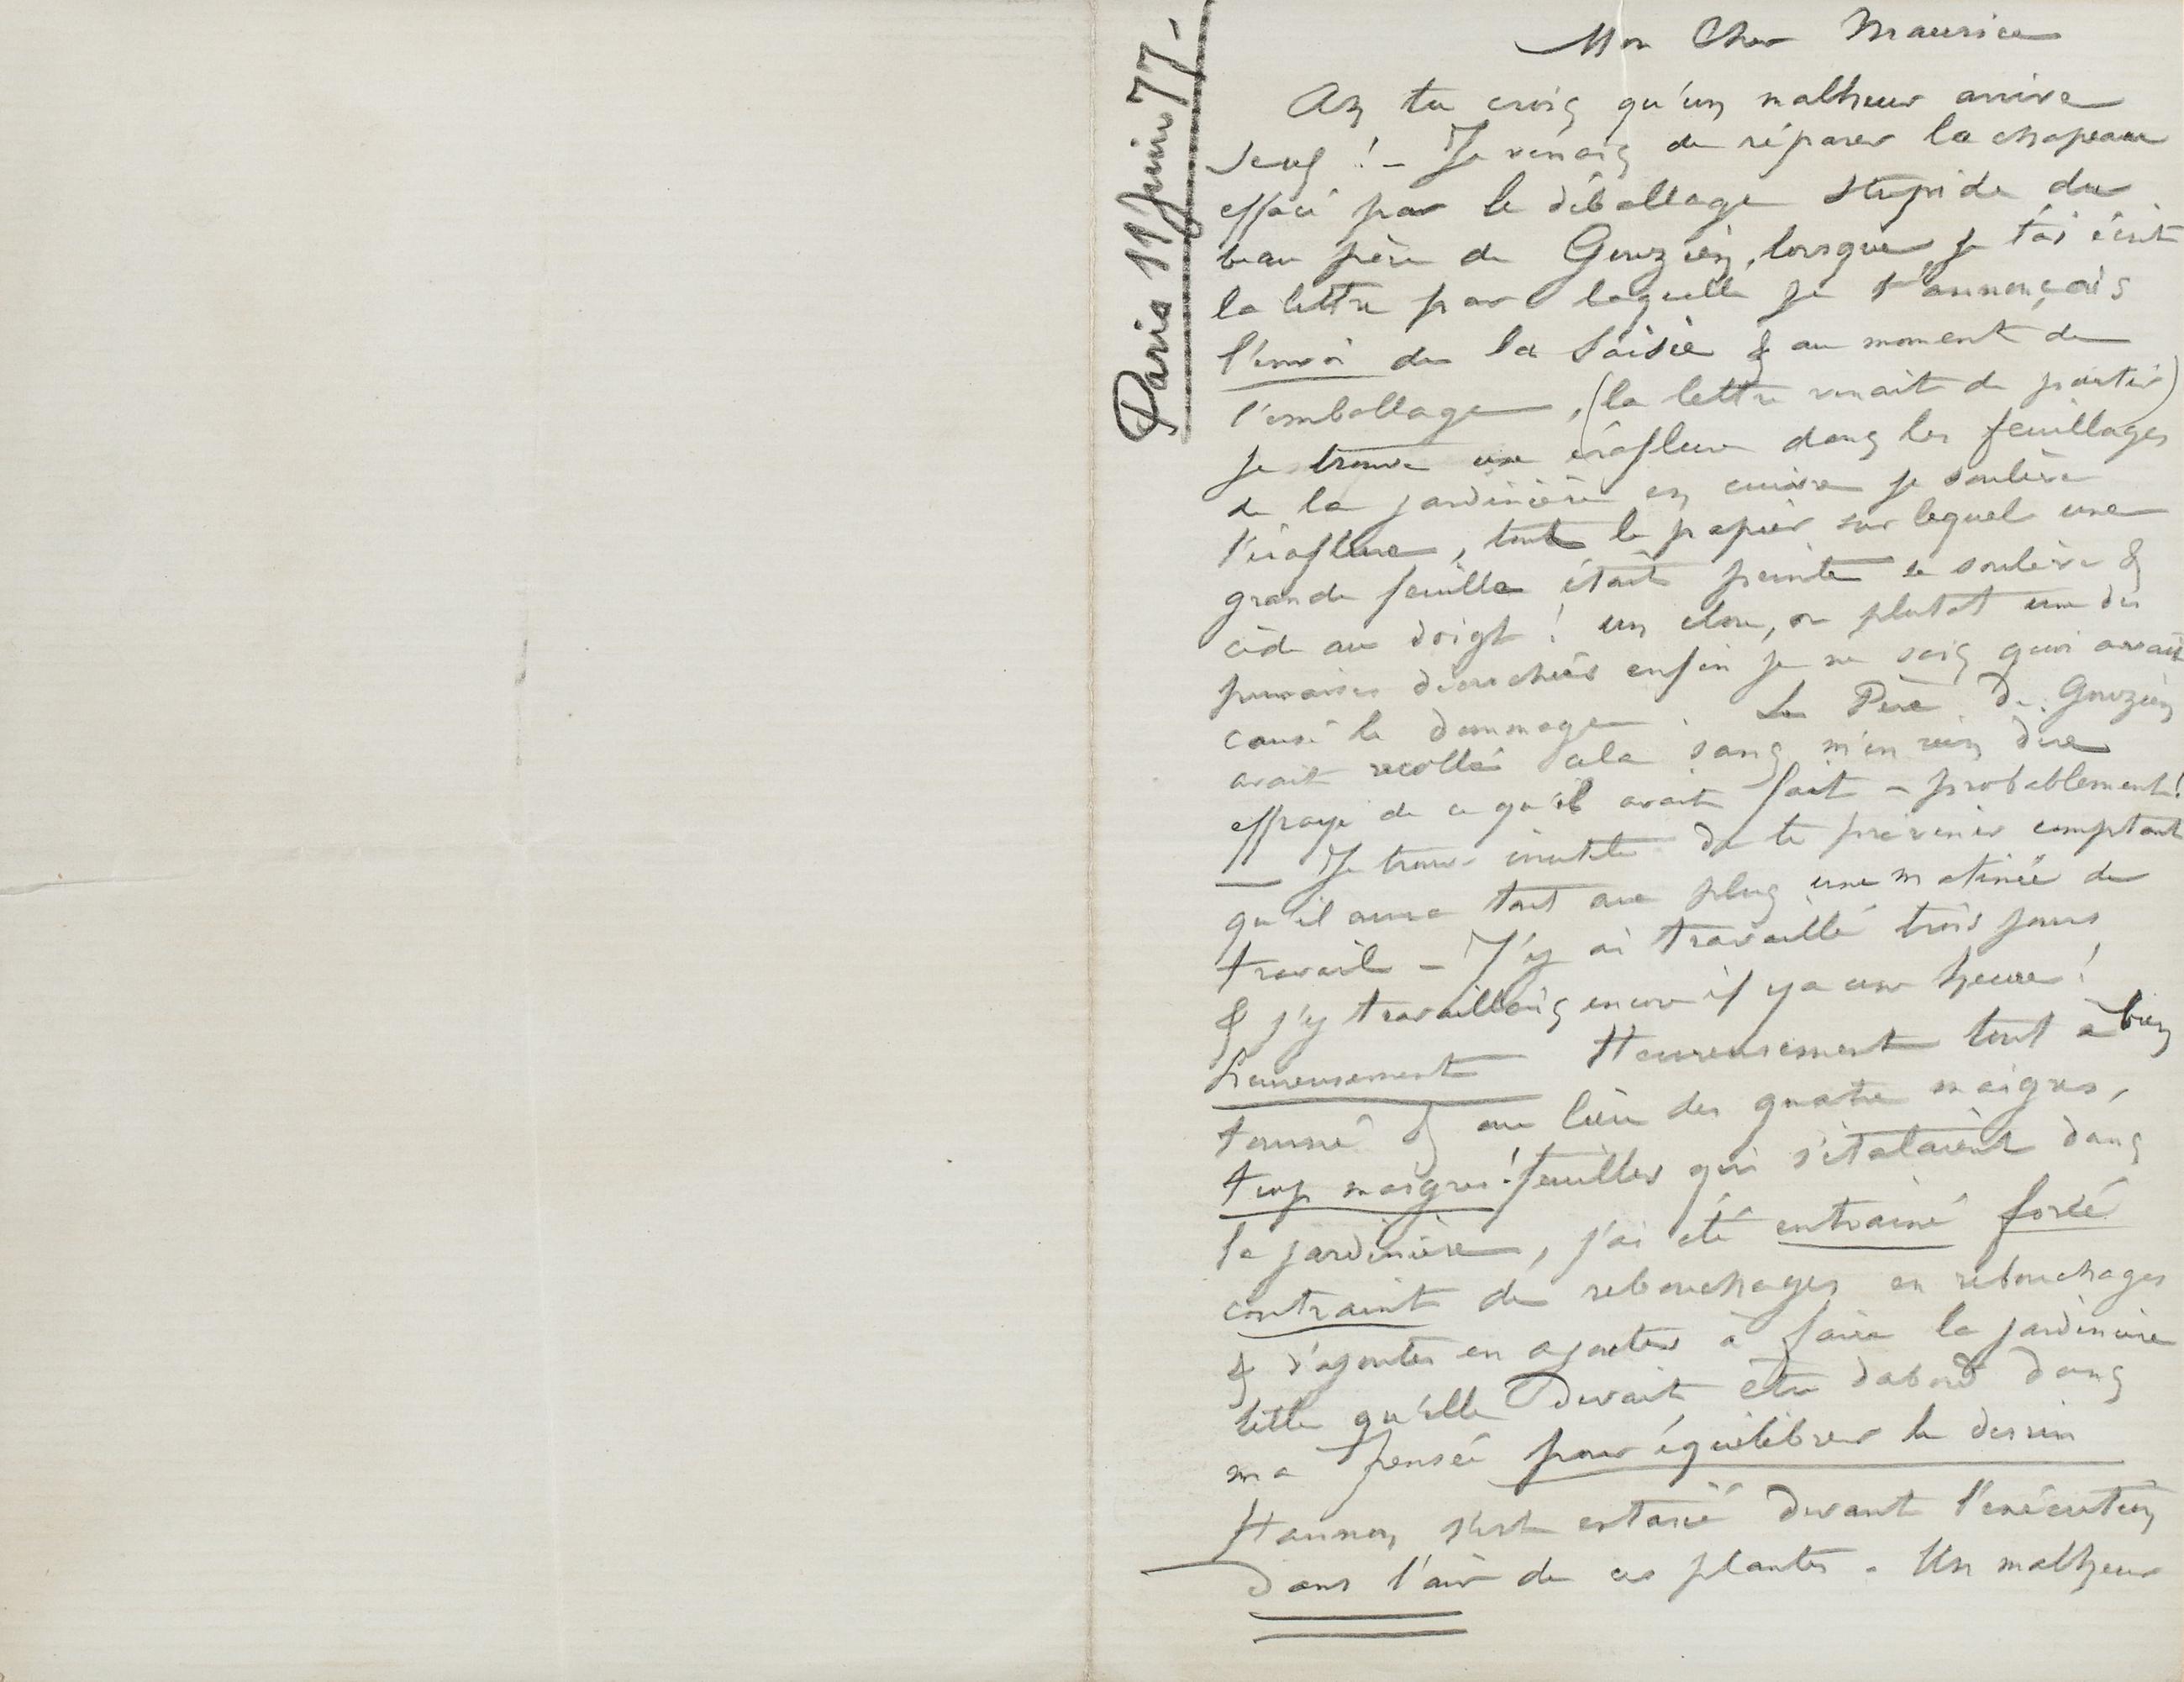 Paris 11 Juin 77 -
Mon Cher Maurice
Ah tu crois qu'un malheur arrive
seul ! - Je venais de réparer le chapeau
effacé par le déballage stupide du
beau père de Gouzien, lorsque je t'ai écrit
la lettre par laquelle je t'annonçais
l'envoi de la Saisie & au moment de
l'emballage, (la lettre venait de partir)
je trouve une éraflure dans les feuillages
de la jardinière en cuivre je soulève
l'éraflure, tout le papier sur lequel une
grande feuille était peinte se soulève &
cède au doigt ! un clou, ou plutot une des
punaises décrochées enfin je ne sais quoi avait
causé le dommage. Le Père de Gouzien
avait recollé cela sans m'en rien dire
effrayé de ce qu'il avait fait - probablement !
— Je trouve inutile de te prévenir comptant
qu'il aura tout au plus une matinée de
travail - J'y ai travaillé trois jours
& j'y travaillais encore il y a une heure !
heureusement Heureusement tout a bien
tourné & au lieu des quatre maigres,
trop maigres ! feuilles qui s'étalaient dans
la jardinière, j'ai été entrainé forcé
contraint de rebouchages en rebouchages
& d'ajoutes en ajoutes à faire la jardinière
telle qu'elle devait être dabord dans
ma pensée pour équilibrer le dessin
Hannon s'est extasié devant l'exécution
dans l'air de ces plantes. Un malheur